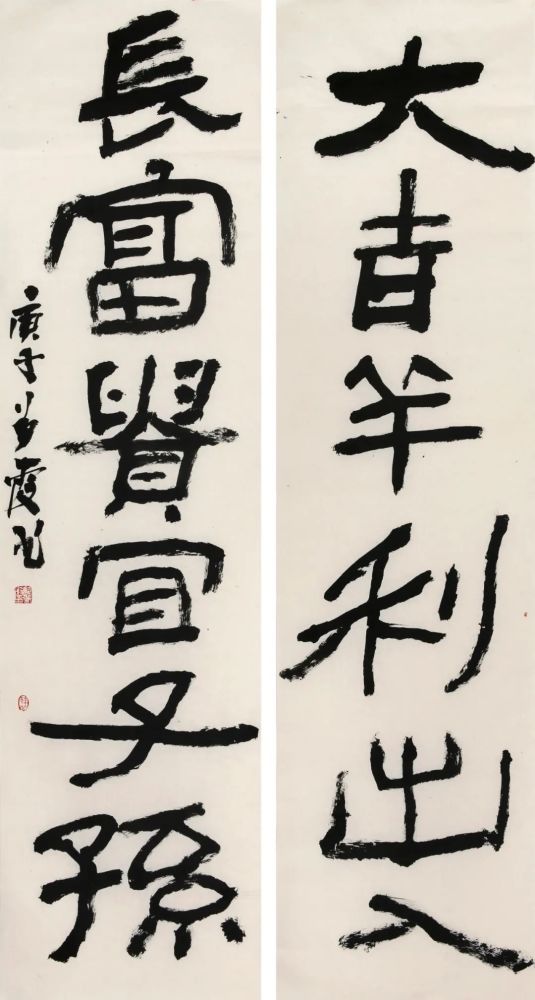 大吉羊利出入
長富貴宜子孫
庚子 霞